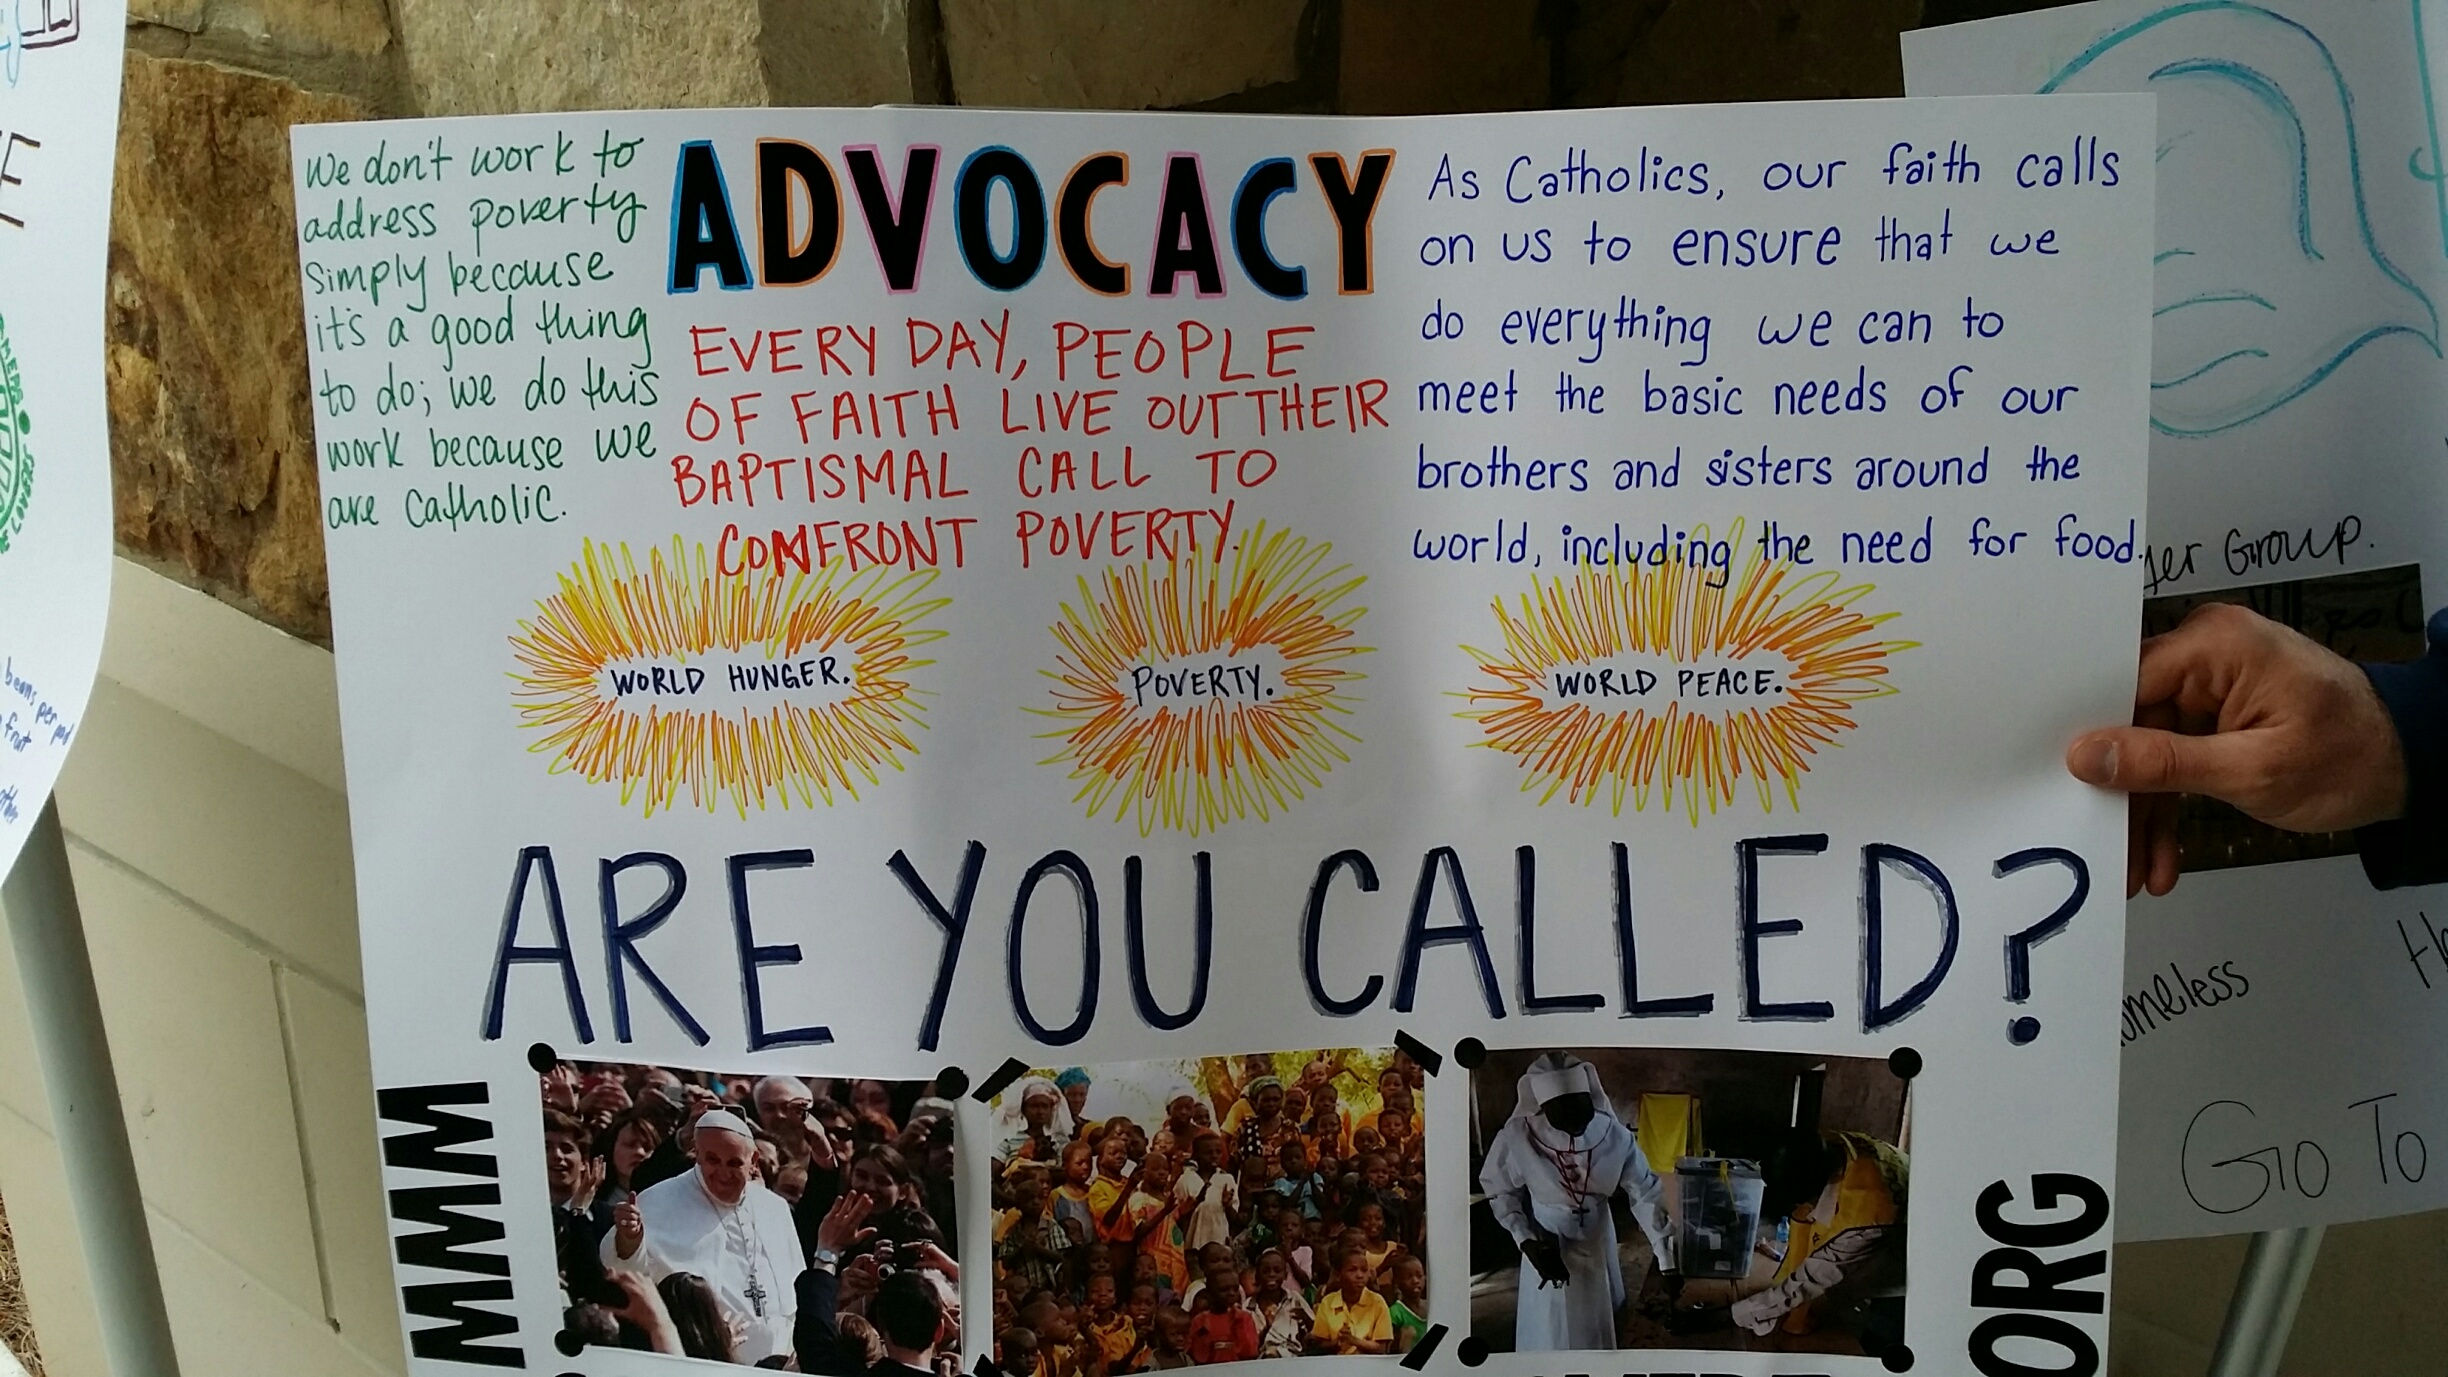 We don't work to
address poverty
simply because
it's a good thing
to do; we do this
work because we
are Catholic.
ADVOCACY
EVERY DAY, PEOPLE
OF FAITH LIVE OUT THEIR
BAPTISMAL CALL TO
CONFRONT POVERTY.
As Catholics, our faith calls
on us to ensure that we
do everything we can to
meet the basic needs of our
brothers and sisters around the
world, including the need for food.
WORLD HUNGER.
POVERTY.
WORLD PEACE.
ARE YOU CALLED?
WWW
ORG
Group.
GO TO
beans per pod
fruit